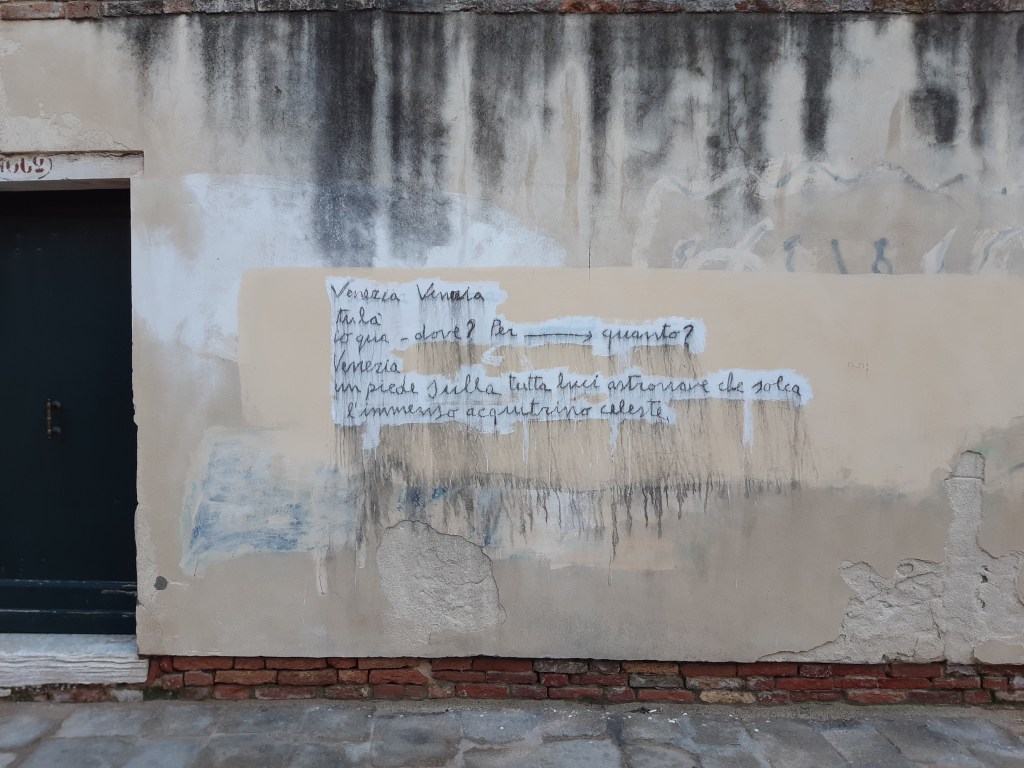 Venezia Venezia
tu là
io qua - dove? Per → quanto?
Venezia
un piede sulla tutta luci astronave che solca
l'immenso acquitrino celeste